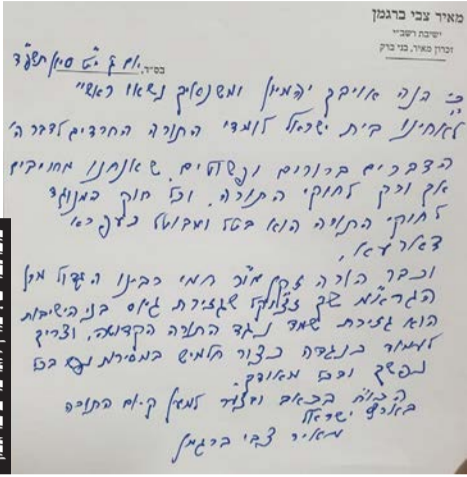 מאיר צבי ברגמן
ישיבת רשב״י
זכרון מאיר, בני ברק
בס״ד, יום ג׳ י״ט סיון תשפ״ד
כי הנה אויביך יהמיון ומשנאיך נשאו ראש״
לאחינו בית ישראל לומדי התורה החרדים לדבר ה׳
הדברים ברורים ופשוטים שאנחנו מחויבים
אך ורק לחוקי התורה. וכל חוק המנוגד
לחוקי התורה הוא בטל ומבוטל כעפרא
דארעא,
וכבר הורה זקן מו״ר חמי רבינו הגדול מרן
הגרא״מ שך זצוק״ל שגזירת גיוס בני הישיבות
הוא גזירת שמד נגד התורה הקדושה, וצריך
לעמוד כנגדה כצור חלמיש במסירות נפש בכל
נפשך ובכל מאודך.
הכו״ח בכאב ובצער למען קיום התורה
בארץ ישראל
מאיר צבי ברגמן